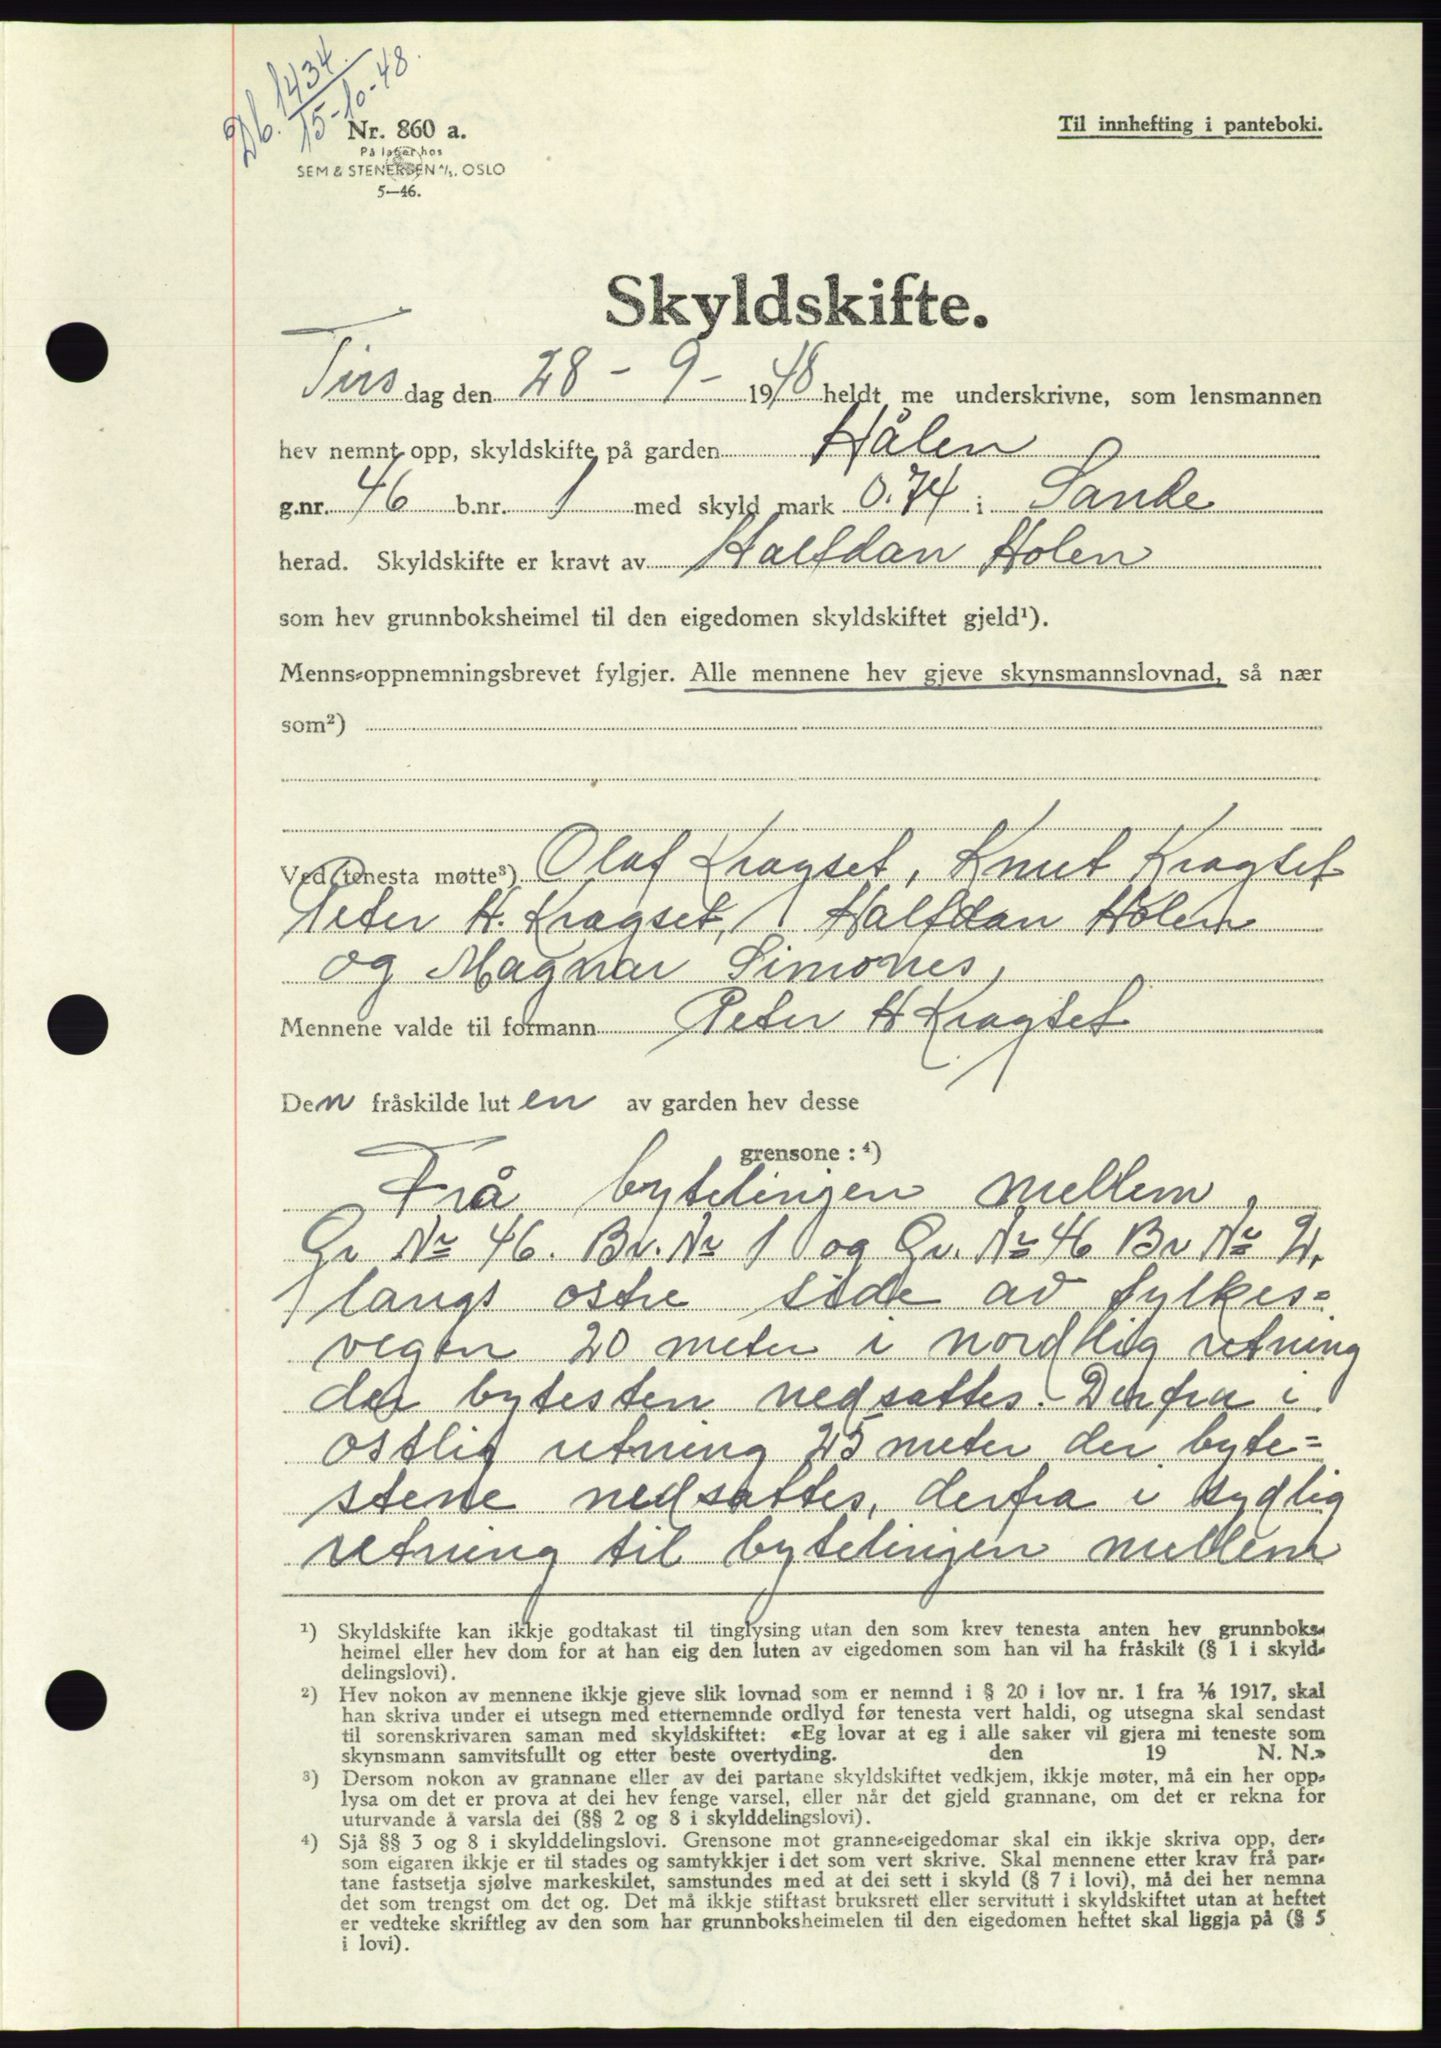 Db. 1434
15-10-48.
Nr. 860 a.
På lager hos
SEM & STENERSEN A/S, OSLO
5—46.
Til innhefting i panteboki.
Skyldskifte.
Tirsdag den 28 - 9 - 1948 heldt me underskrivne, som lensmannen
hev nemnt opp, skyldskifte på garden Hålen
g.nr. 46 b.nr. 1 med skyld mark 0.74 i Sande
herad. Skyldskifte er kravt av Halfdan Holen
som hev grunnboksheimel til den eigedomen skyldskiftet gjeld¹).
Menns-oppnemningsbrevet fylgjer. Alle mennene hev gjeve skynsmannslovnad, så nær
som²)
Ved tenesta møtte³) Olaf Kragset, Knut Kragset
Peter H. Kragset, Halfdan Holen
og Magnar Simones,
Mennene valde til formann Peter H Kragset
Den fråskilde luten av garden hev desse
grensone : ⁴)
Frå bytelinjen mellem
Gr Nr 46. Br. Nr 1 og Gr. Nr 46 Br Nr 2,
langs ostre side av fylkes=
vegen 20 meter i nordlig retning
der bytesten nedsattes. Derfra i
ostlig retning 25 meter der byte=
stene nedsattes, derfra i sydlig
retning til bytelinjen mellem
¹) Skyldskifte kan ikkje godtakast til tinglysing utan den som krev tenesta anten hev grunnboks-
heimel eller hev dom for at han eig den luten av eigedomen som han vil ha fråskilt (§ 1 i skyld-
delingslovi).
²) Hev nokon av mennene ikkje gjeve slik lovnad som er nemnd i § 20 i lov nr. 1 fra ⅙ 1917, skal
han skriva under ei utsegn med etternemnde ordlyd før tenesta vert haldi, og utsegna skal sendast
til sorenskrivaren saman med skyldskiftet: «Eg lovar at eg i alle saker vil gjera mi teneste som
skynsmann samvitsfullt og etter beste overtyding. den 19 N. N.»
³) Dersom nokon av grannane eller av dei partane skyldskiftet vedkjem, ikkje møter, må ein her opp-
lysa om det er prova at dei hev fenge varsel, eller når det gjeld grannane, om det er rekna for
uturvande å varsla dei (§§ 2 og 8 i skylddelingslovi).
⁴) Sjå §§ 3 og 8 i skylddelingslovi. Grensone mot granne-eigedomar skal ein ikkje skriva opp, der-
som eigaren ikkje er til stades og samtykkjer i det som vert skrive. Skal mennene etter krav frå par-
tane fastsetja sjølve markeskilet, samstundes med at dei sett i skyld (§ 7 i lovi), må dei her nemna
det som trengst om det og. Det må ikkje stiftast bruksrett eller servitutt i skyldskiftet utan at heftet
er vedteke skriftleg av den som har grunnboksheimelen til den eigedomen heftet skal liggja på (§ 5
i lovi).